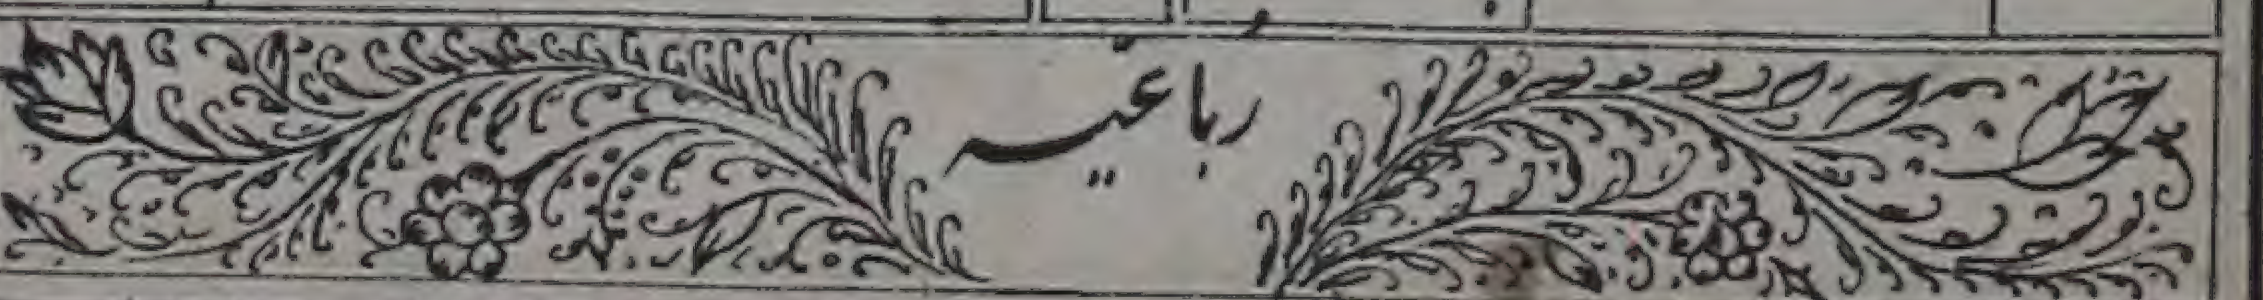 رباعیه